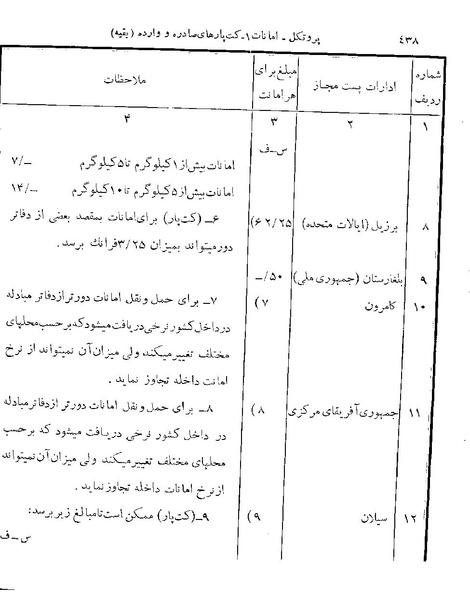 ٤٣٨
پروتکل ـ امانات ۱ـ کت‌پارهای صادره و وارده (بقیه)
شماره ردیف
ادارات پست مجاز
مبلغ برای هر امانت
ملاحظات
۱
۲
۳
۴
س ـ ف
امانات بیش از ۱ کیلوگرم تا ۵ کیلوگرم ۷/ـ
امانات بیش از ۵ کیلوگرم تا ۱۰ کیلوگرم ۱۴/ـ
۸
برزیل (ایالات متحده)
۲/۲۵ ۶)
۶ـ (کت‌پار) برای امانات بمقصد بعضی از دفاتر
دور میتواند بمیزان ۳/۲۵ فرانک برسد.
۹
بلغارستان (جمهوری ملی)
ـ/۵۰
۱۰
کامرون
۷)
۷ـ برای حمل و نقل امانات دورتر از دفاتر مبادله
در داخل کشور نرخی دریافت میشود که برحسب محلهای
مختلف تغییر میکند ولی میزان آن نمیتواند از نرخ
امانت داخله تجاوز نماید.
۱۱
جمهوری آفریقای مرکزی
۸)
۸ـ برای حمل و نقل امانات دورتر از دفاتر مبادله
در داخل کشور نرخی دریافت میشود که برحسب
محلهای مختلف تغییر میکند ولی میزان آن نمیتواند
از نرخ امانات داخله تجاوز نماید.
۱۲
سیلان
۹)
۹ـ (کت‌پار) ممکن است تا مبالغ زیر برسد:
س ـ ف